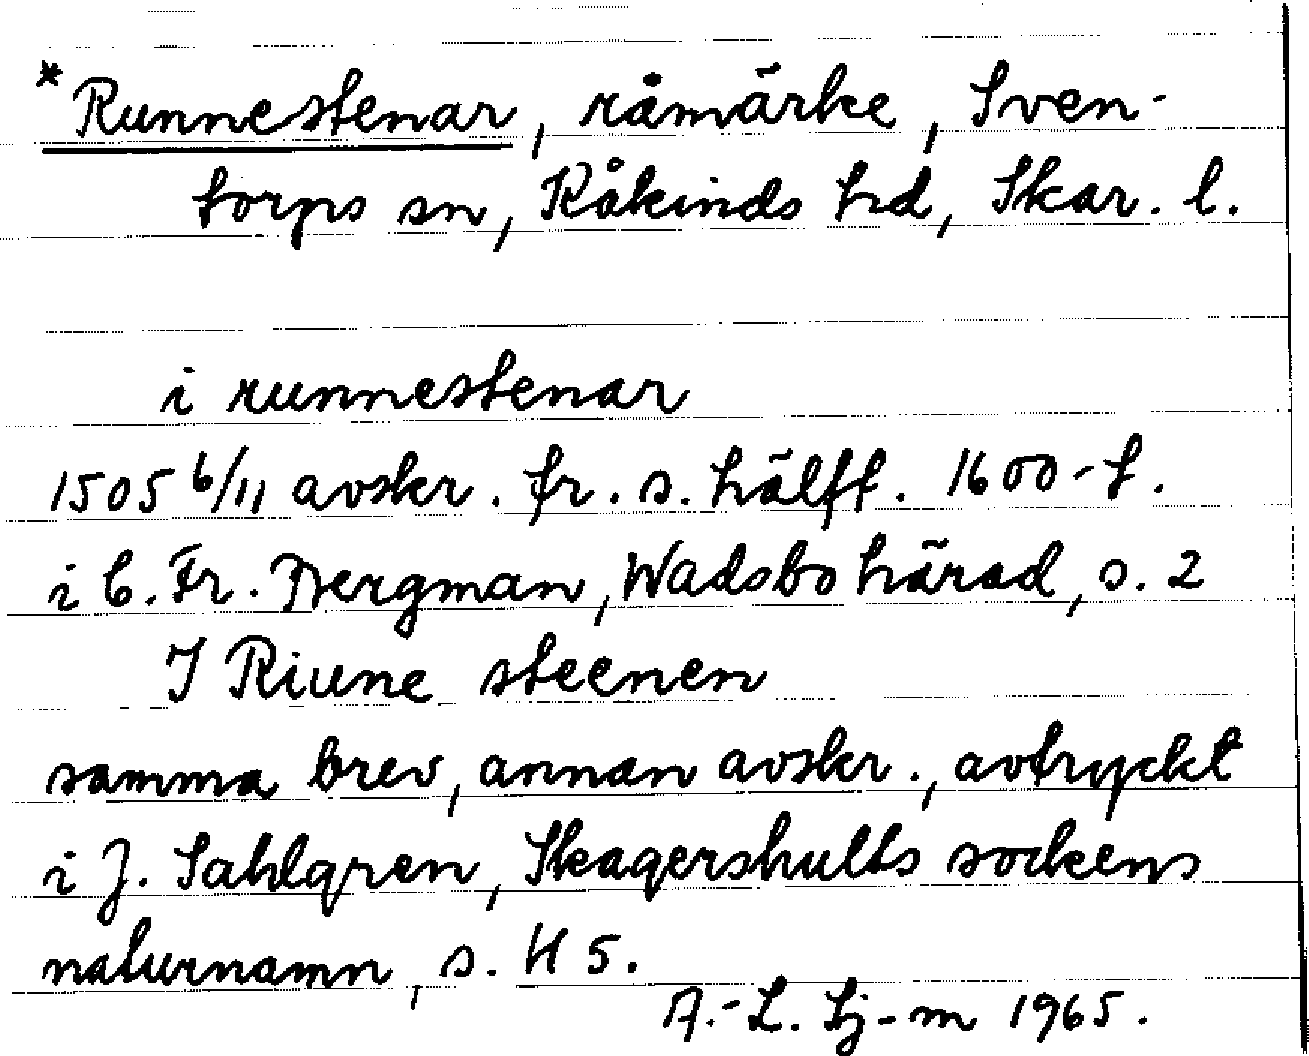 *Runnestenar, råmärke, Sven-
torps sn, Kåkinds hd, Skar. l.
i runnestenar
1505 6/11 avskr. fr. s. hälft. 1600-t.
i C. Fr. Bergman, Wadsbo härad, s. 2
I Riune steenen
samma brev, annan avskr., avtryckt
i J. Sahlgren, Skagershults sockens
naturnamn, s. H 5.
A.-L. Lj-m 1965.